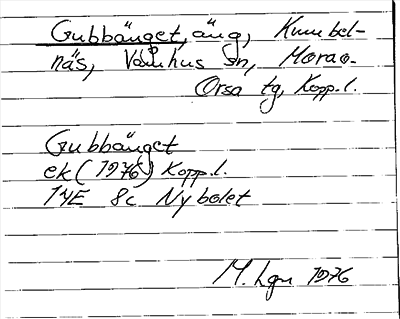 Gubbänget, äng, Kumbel-
näs, Våmhus sn, Mora o.
Orsa tg, Kopp. l.
Gubbänget
ek (1976) Kopp. l.
14E 8c Nybolet
M. Lgn 1976